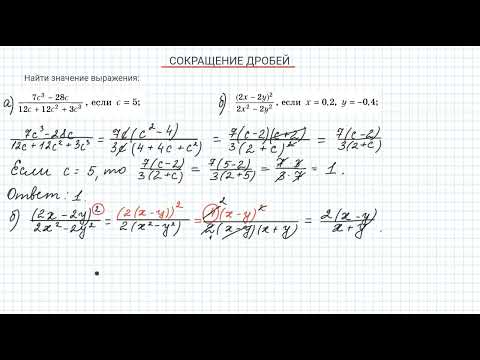 СОКРАЩЕНИЕ ДРОБЕЙ
Найти значение выражения:
а) (7c³ − 28c)/(12c + 12c² + 3c³), если c = 5; б) (2x − 2y)²/(2x² − 2y²), если x = 0,2, y = −0,4;
(7c³ − 28c)/(12c + 12c² + 3c³) = 7c(c² − 4)/3c(4 + 4c + c²) = 7(c − 2)(c + 2)/3(2 + c)² = 7(c − 2)/3(2 + c)
Если c = 5, то 7(c − 2)/3(2 + c) = 7(5 − 2)/3(2 + 5) = 7 · 3/3 · 7 = 1.
Ответ: 1.
б) (2x − 2y)²/(2x² − 2y²) = (2(x − y))²/2(x² − y²) = 4(x − y)²/2(x − y)(x + y) = 2(x − y)/(x + y).